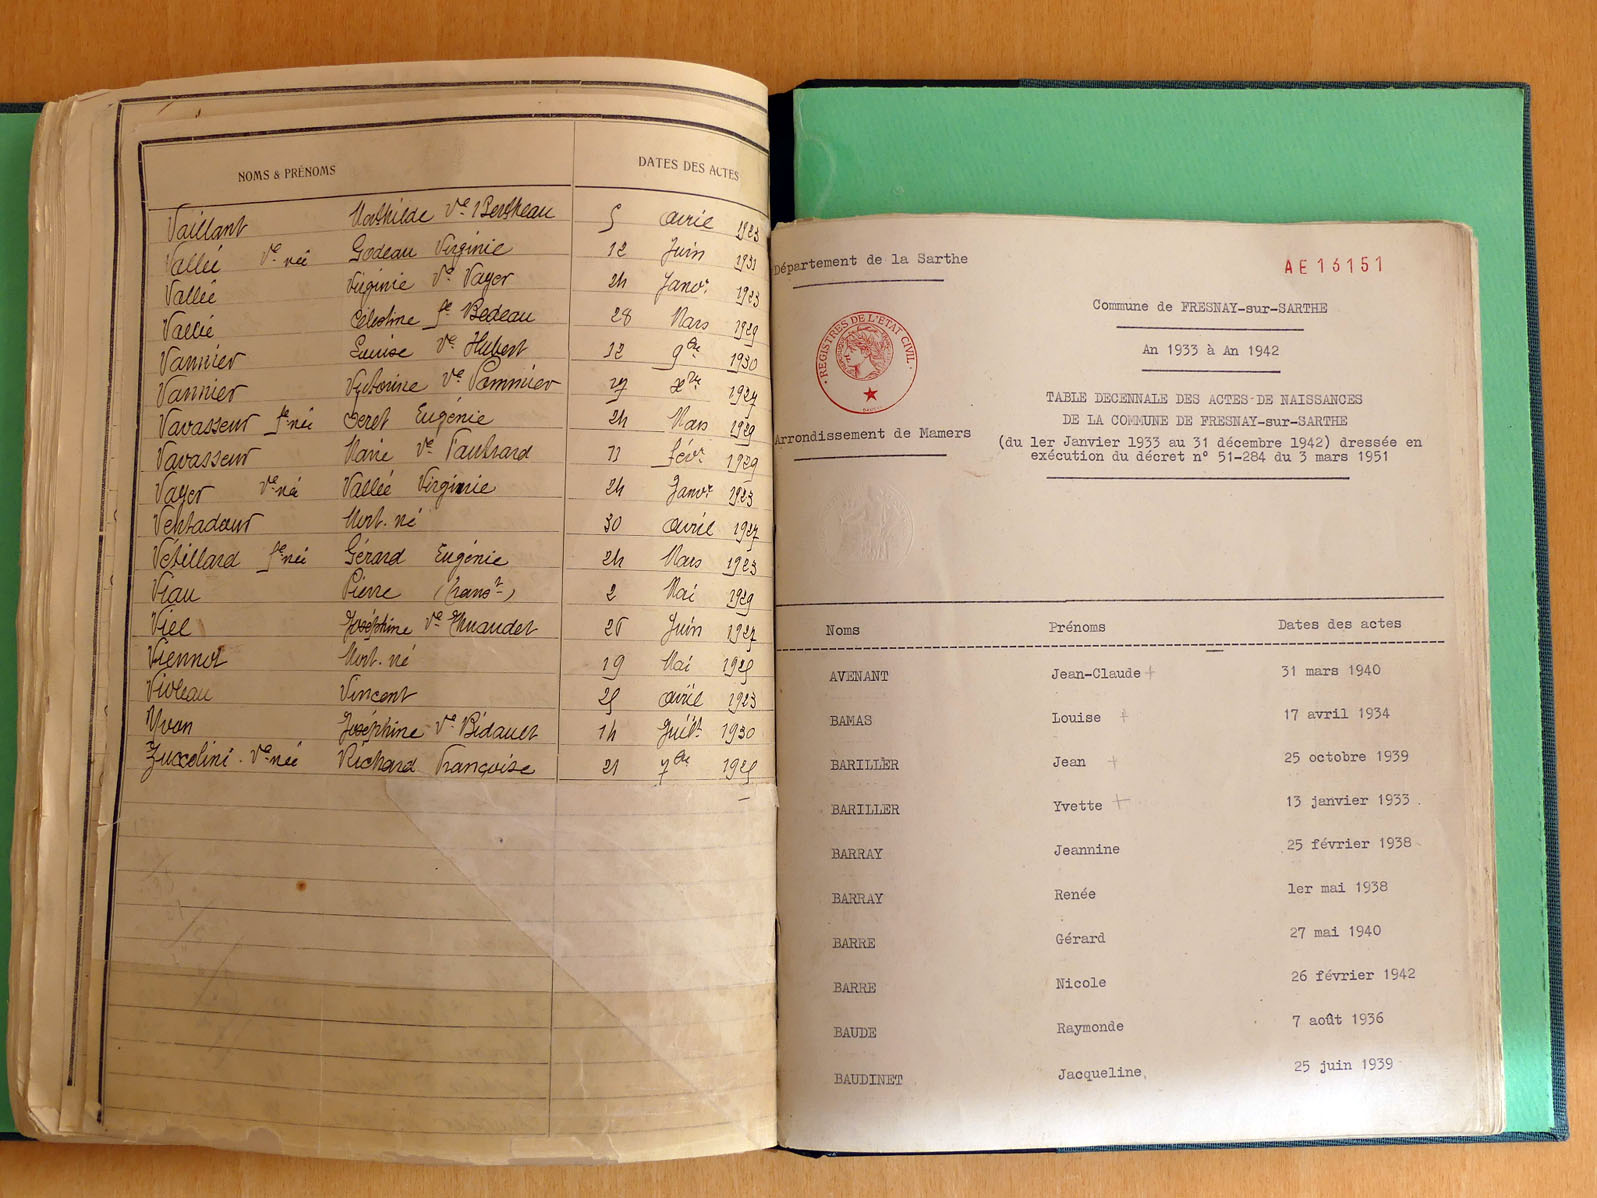 NOMS & PRÉNOMS DATES DES ACTES
Vaillant Mathilde Ve Bertheau 5 avril 1923
Vallée Ve née Godeau Virginie 12 Juin 1931
Vallée Virginie Ve Vayer 24 Janvr 1923
Vallée Célestine fe Bedeau 28 Mars 1929
Vannier Louise Ve Hubert 12 9bre 1930
Vannier Victorine Ve Pommier 27 Xbre 1927
Vavasseur fe née Seret Eugénie 24 Mars 1929
Vavasseur Marie Ve 11 févr 1929
Vayer Ve née Vallée Virginie 24 Janvr 1923
Ventadour Mort-né 30 avril 1927
Vétillard fe née Gérard Eugénie 24 Mars 1923
Viau Pierre (transt) 2 Mai 1929
Viel Joséphine Ve 26 Juin 1927
Viennot Mort-né 19 Mai 1925
Violeau Vincent 25 avril 1923
Yvon Joséphine Ve Bidault 14 Juillt 1930
Zuccolini Ve née Richard Françoise 21 7bre 1925
Département de la Sarthe
AE16151
REGISTRES DE L'ETAT CIVIL
Arrondissement de Mamers
Commune de FRESNAY-sur-SARTHE
An 1933 à An 1942
TABLE DECENNALE DES ACTES DE NAISSANCES
DE LA COMMUNE DE FRESNAY-sur-SARTHE
(du 1er Janvier 1933 au 31 décembre 1942) dressée en
exécution du décret n° 51-284 du 3 mars 1951
Noms Prénoms Dates des actes
AVENANT Jean-Claude + 31 mars 1940
BAMAS Louise + 17 avril 1934
BARILLER Jean + 25 octobre 1939
BARILLER Yvette + 13 janvier 1933
BARRAY Jeannine 25 février 1938
BARRAY Renée 1er mai 1938
BARRE Gérard 27 mai 1940
BARRE Nicole 26 février 1942
BAUDE Raymonde 7 août 1936
BAUDINET Jacqueline 25 juin 1939